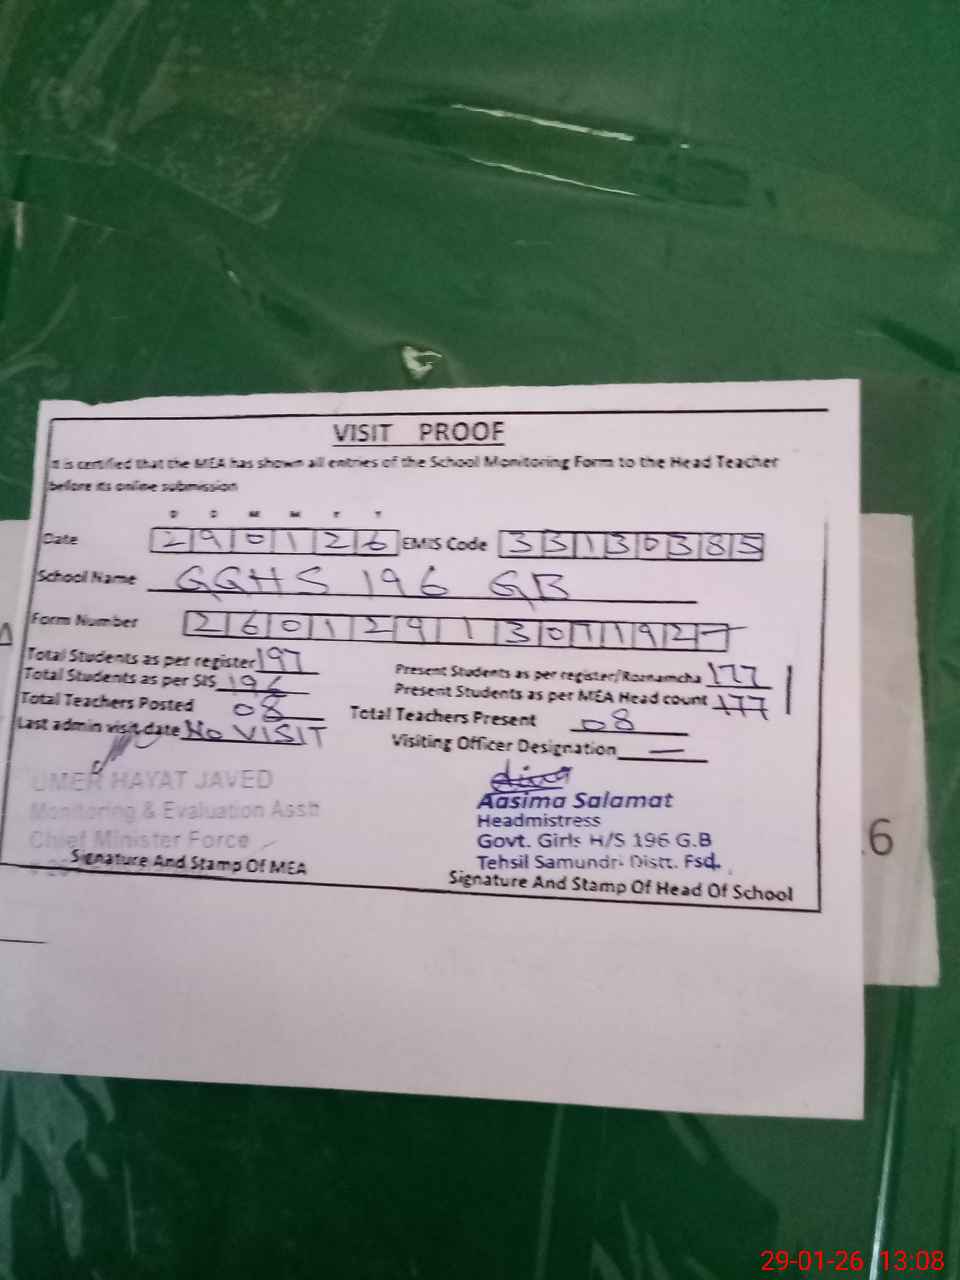 VISIT PROOF
It is certified that the MEA has shown all entries of the School Monitoring Form to the Head Teacher
before its online submission
D D M M Y Y
Date 290126 EMIS Code 33130385
School Name GGHS 196 GB
Form Number
Total Students as per register 197 Present Students as per register/Roznamcha 177
Total Students as per SIS 196 Present Students as per MEA Head count 177
Total Teachers Posted 08 Total Teachers Present 08
Last admin visit date No VISIT Visiting Officer Designation —
UMER HAYAT JAVED
Monitoring & Evaluation Asstt
Chief Minister Force
Signature And Stamp Of MEA
Aasima Salamat
Headmistress
Govt. Girls H/S 196 G.B
Tehsil Samundri Distt. Fsd.
Signature And Stamp Of Head Of School
6
29-01-26 13:08